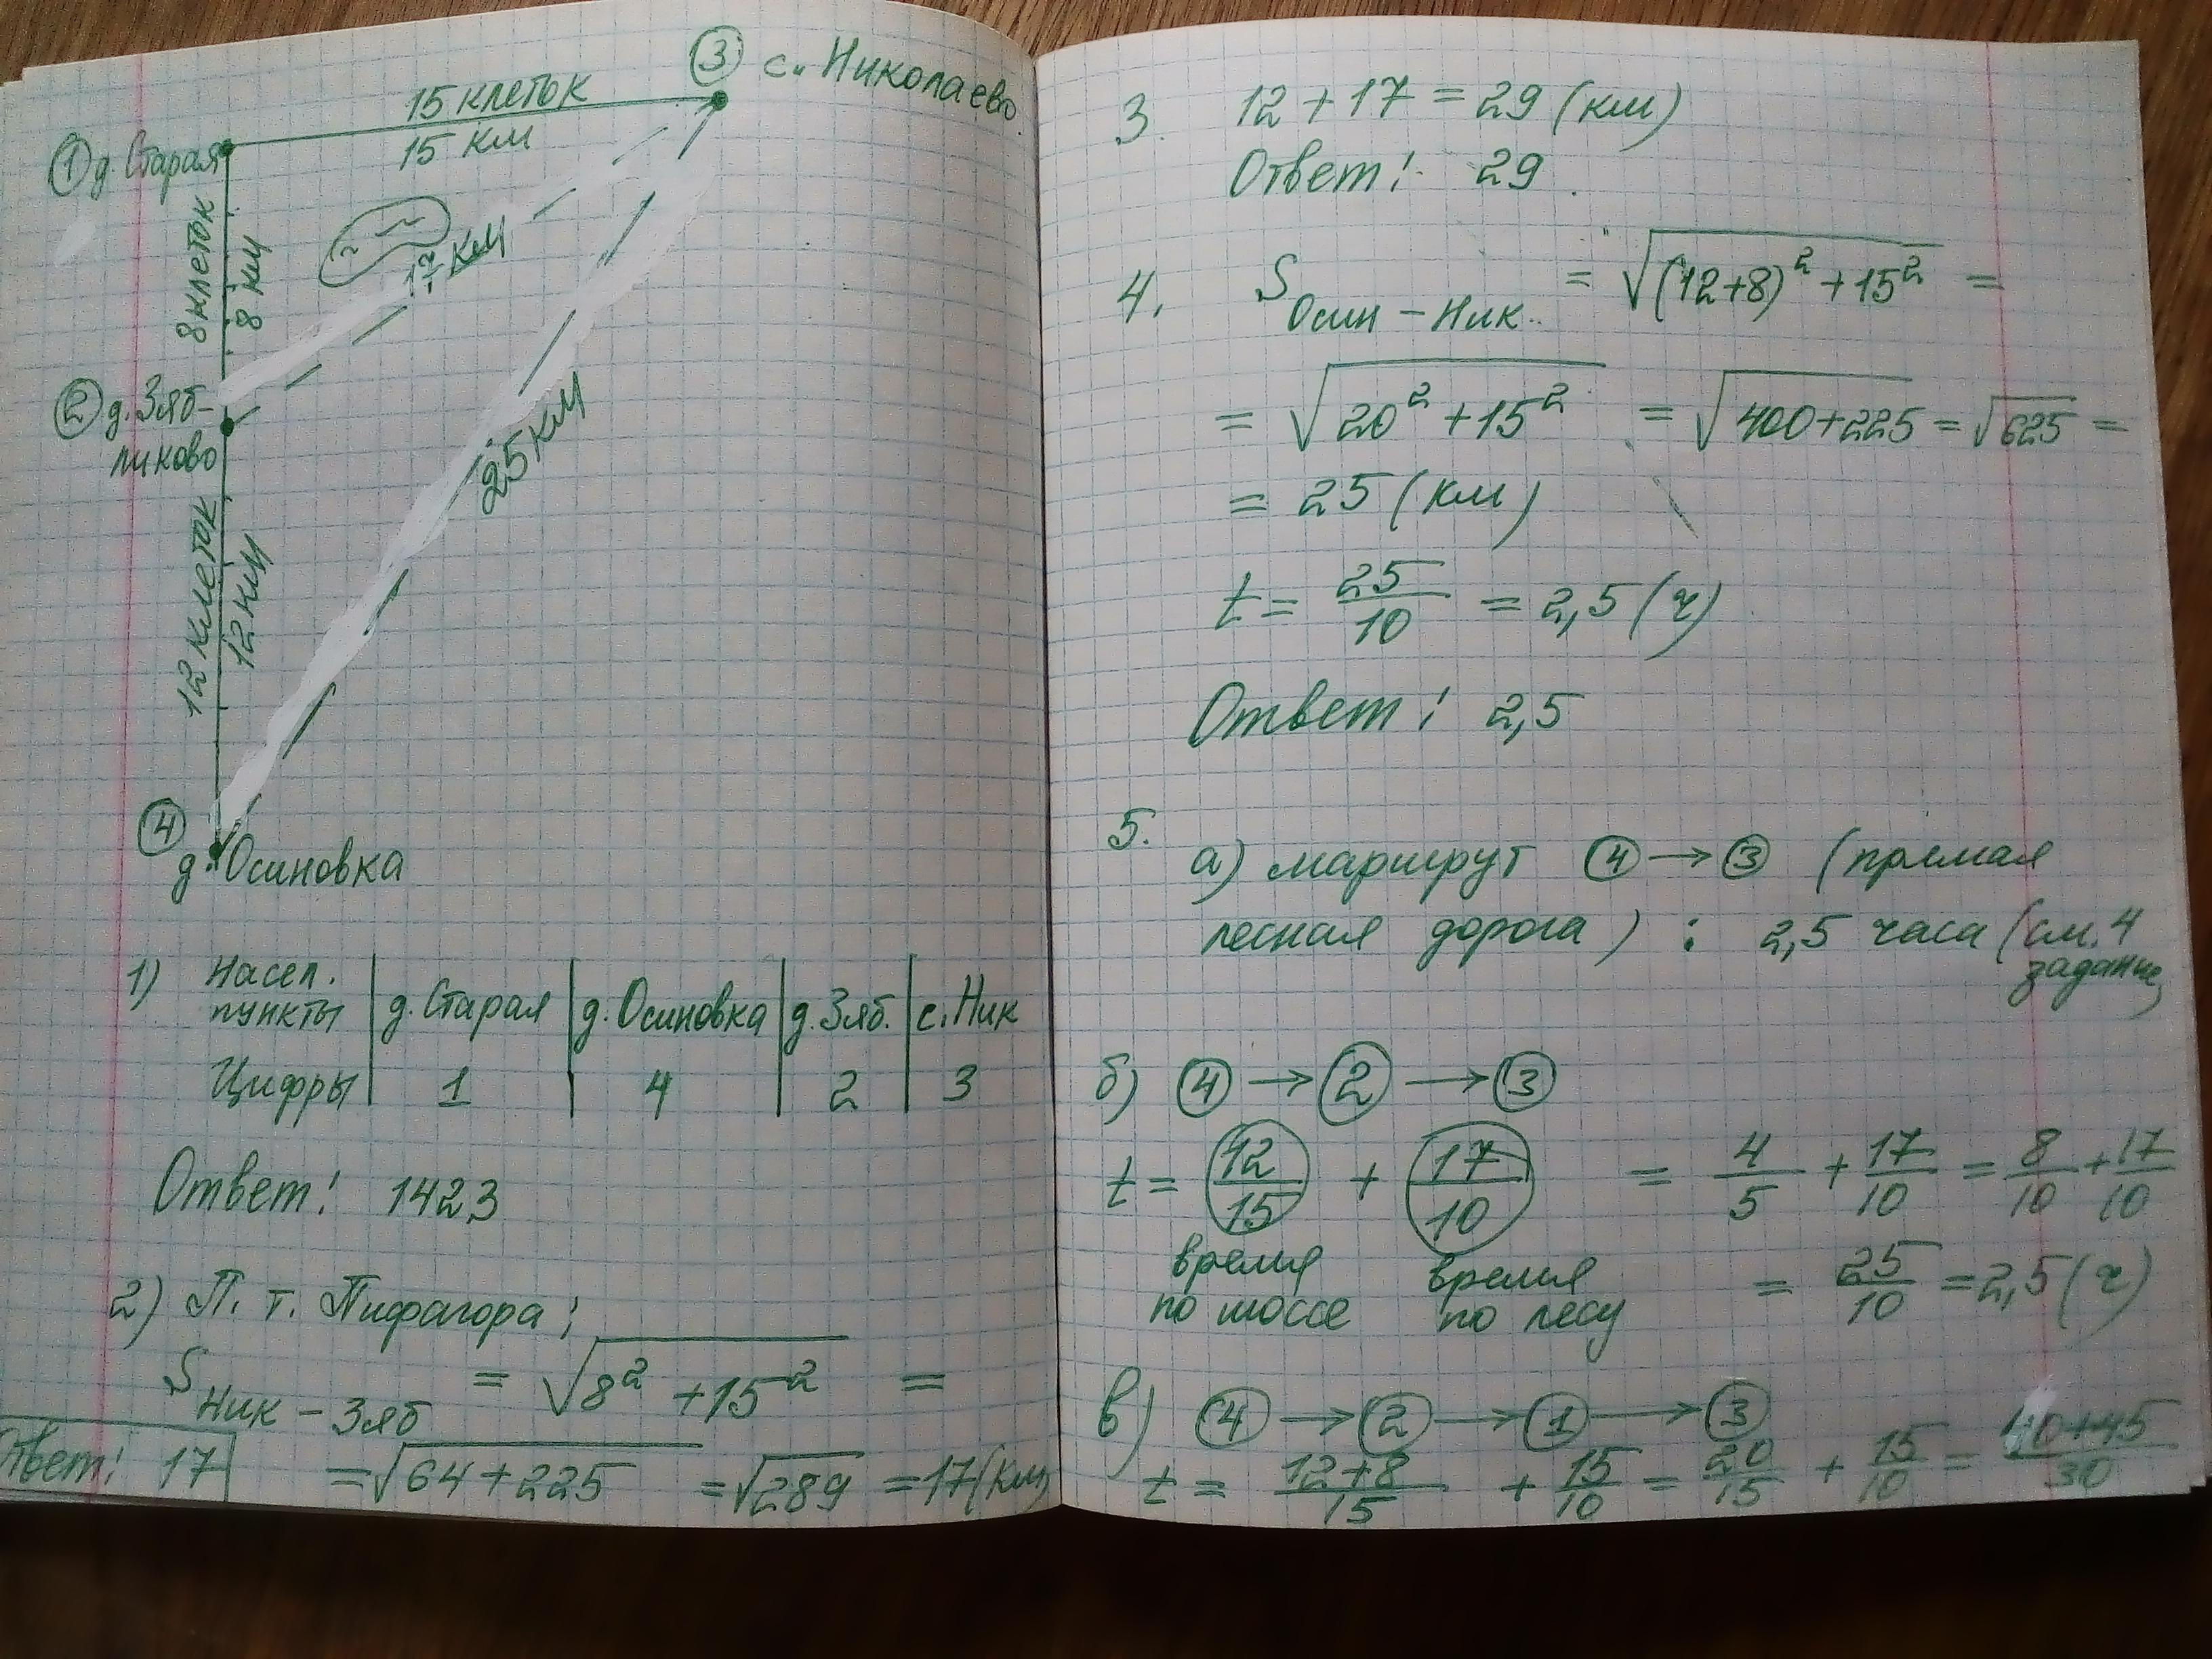 ③ с. Николаево
15 клеток
15 км
① д. Старая
8 клеток
8 км
17 км
② д. Зяб-
ликово
25 км
12 клеток
12 км
④
д. Осиновка
1) Насел. пункты | д. Старая | д. Осиновка | д. Зяб. | с. Ник
Цифры | 1 | 4 | 2 | 3
Ответ: 1423
2) П. т. Пифагора:
S Ник – Зяб = √(8² + 15²) =
= √(64 + 225) = √289 = 17 (км)
Ответ: 17
3. 12 + 17 = 29 (км)
Ответ: 29.
4. S Осин – Ник. = √((12+8)² + 15²) =
= √(20² + 15²) = √(400 + 225) = √625 =
= 25 (км)
t = 25/10 = 2,5 (ч)
Ответ: 2,5
5.
а) маршрут ④ → ③ (прямая
лесная дорога) : 2,5 часа (см. 4
задание)
б) ④ → ② → ③
t = 12/15 + 17/10 = 4/5 + 17/10 = 8/10 + 17/10
время по шоссе
время по лесу
= 25/10 = 2,5 (ч)
в) ④ → ② → ① → ③
t = (12+8)/15 + 15/10 = 20/15 + 15/10 = (40+45)/30